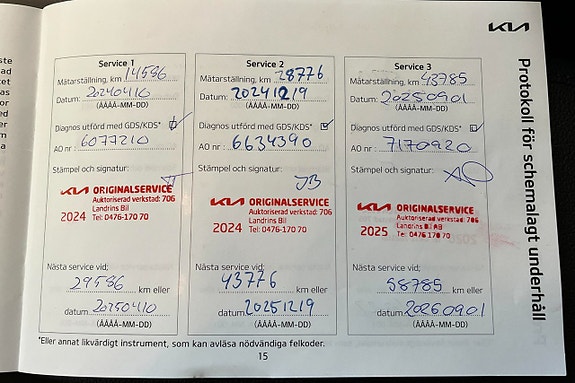 KIA
Protokoll för schemalagt underhåll
Service 1
Mätarställning, km 14586
Datum: 20240410
(ÅÅÅÅ-MM-DD)
Diagnos utförd med GDS/KDS*
AO nr: 6077210
Stämpel och signatur:
KIA ORIGINALSERVICE
Auktoriserad verkstad: 706
Landrins Bil
2024 Tel: 0476-170 70
Nästa service vid;
29586 km eller
datum: 20250410
(ÅÅÅÅ-MM-DD)
Service 2
Mätarställning, km 28776
Datum: 20241219
(ÅÅÅÅ-MM-DD)
Diagnos utförd med GDS/KDS*
AO nr: 6634390
Stämpel och signatur:
JB
KIA ORIGINALSERVICE
Auktoriserad verkstad: 706
Landrins Bil
2024 Tel: 0476-170 70
Nästa service vid;
43776 km eller
datum: 20251219
(ÅÅÅÅ-MM-DD)
Service 3
Mätarställning, km 43785
Datum: 20250901
(ÅÅÅÅ-MM-DD)
Diagnos utförd med GDS/KDS*
AO nr: 7170920
Stämpel och signatur:
KIA ORIGINALSERVICE
Auktoriserad verkstad: 706
Landrins Bil AB
2025 Tel: 0476 170 70
Nästa service vid;
58785 km eller
datum: 20260901
(ÅÅÅÅ-MM-DD)
*Eller annat likvärdigt instrument, som kan avläsa nödvändiga felkoder.
15